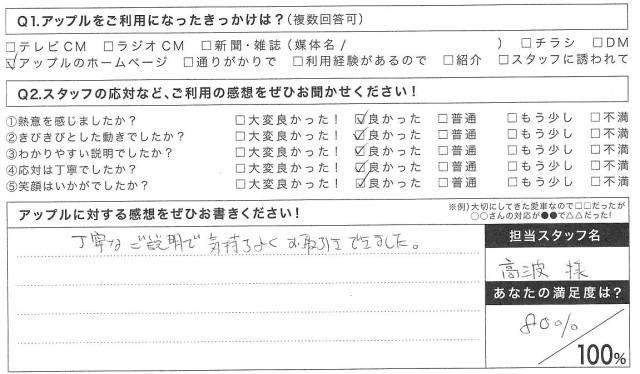 Q1.アップルをご利用になったきっかけは？(複数回答可)
□テレビCM □ラジオCM □新聞・雑誌(媒体名/ ) □チラシ □DM
☑アップルのホームページ □通りがかりで □利用経験があるので □紹介 □スタッフに誘われて
Q2.スタッフの応対など、ご利用の感想をぜひお聞かせください！
①熱意を感じましたか？ □大変良かった！ ☑良かった □普通 □もう少し □不満
②きびきびとした動きでしたか？ □大変良かった！ ☑良かった □普通 □もう少し □不満
③わかりやすい説明でしたか？ □大変良かった！ ☑良かった □普通 □もう少し □不満
④応対は丁寧でしたか？ □大変良かった！ ☑良かった □普通 □もう少し □不満
⑤笑顔はいかがでしたか？ □大変良かった！ ☑良かった □普通 □もう少し □不満
アップルに対する感想をぜひお書きください！
※例)大切にしてきた愛車なので□□だったが
○○さんの対応が●●で△△だった!
丁寧なご説明で気持ちよくお取引きできました。
担当スタッフ名
高波 様
あなたの満足度は？
80%
/100%